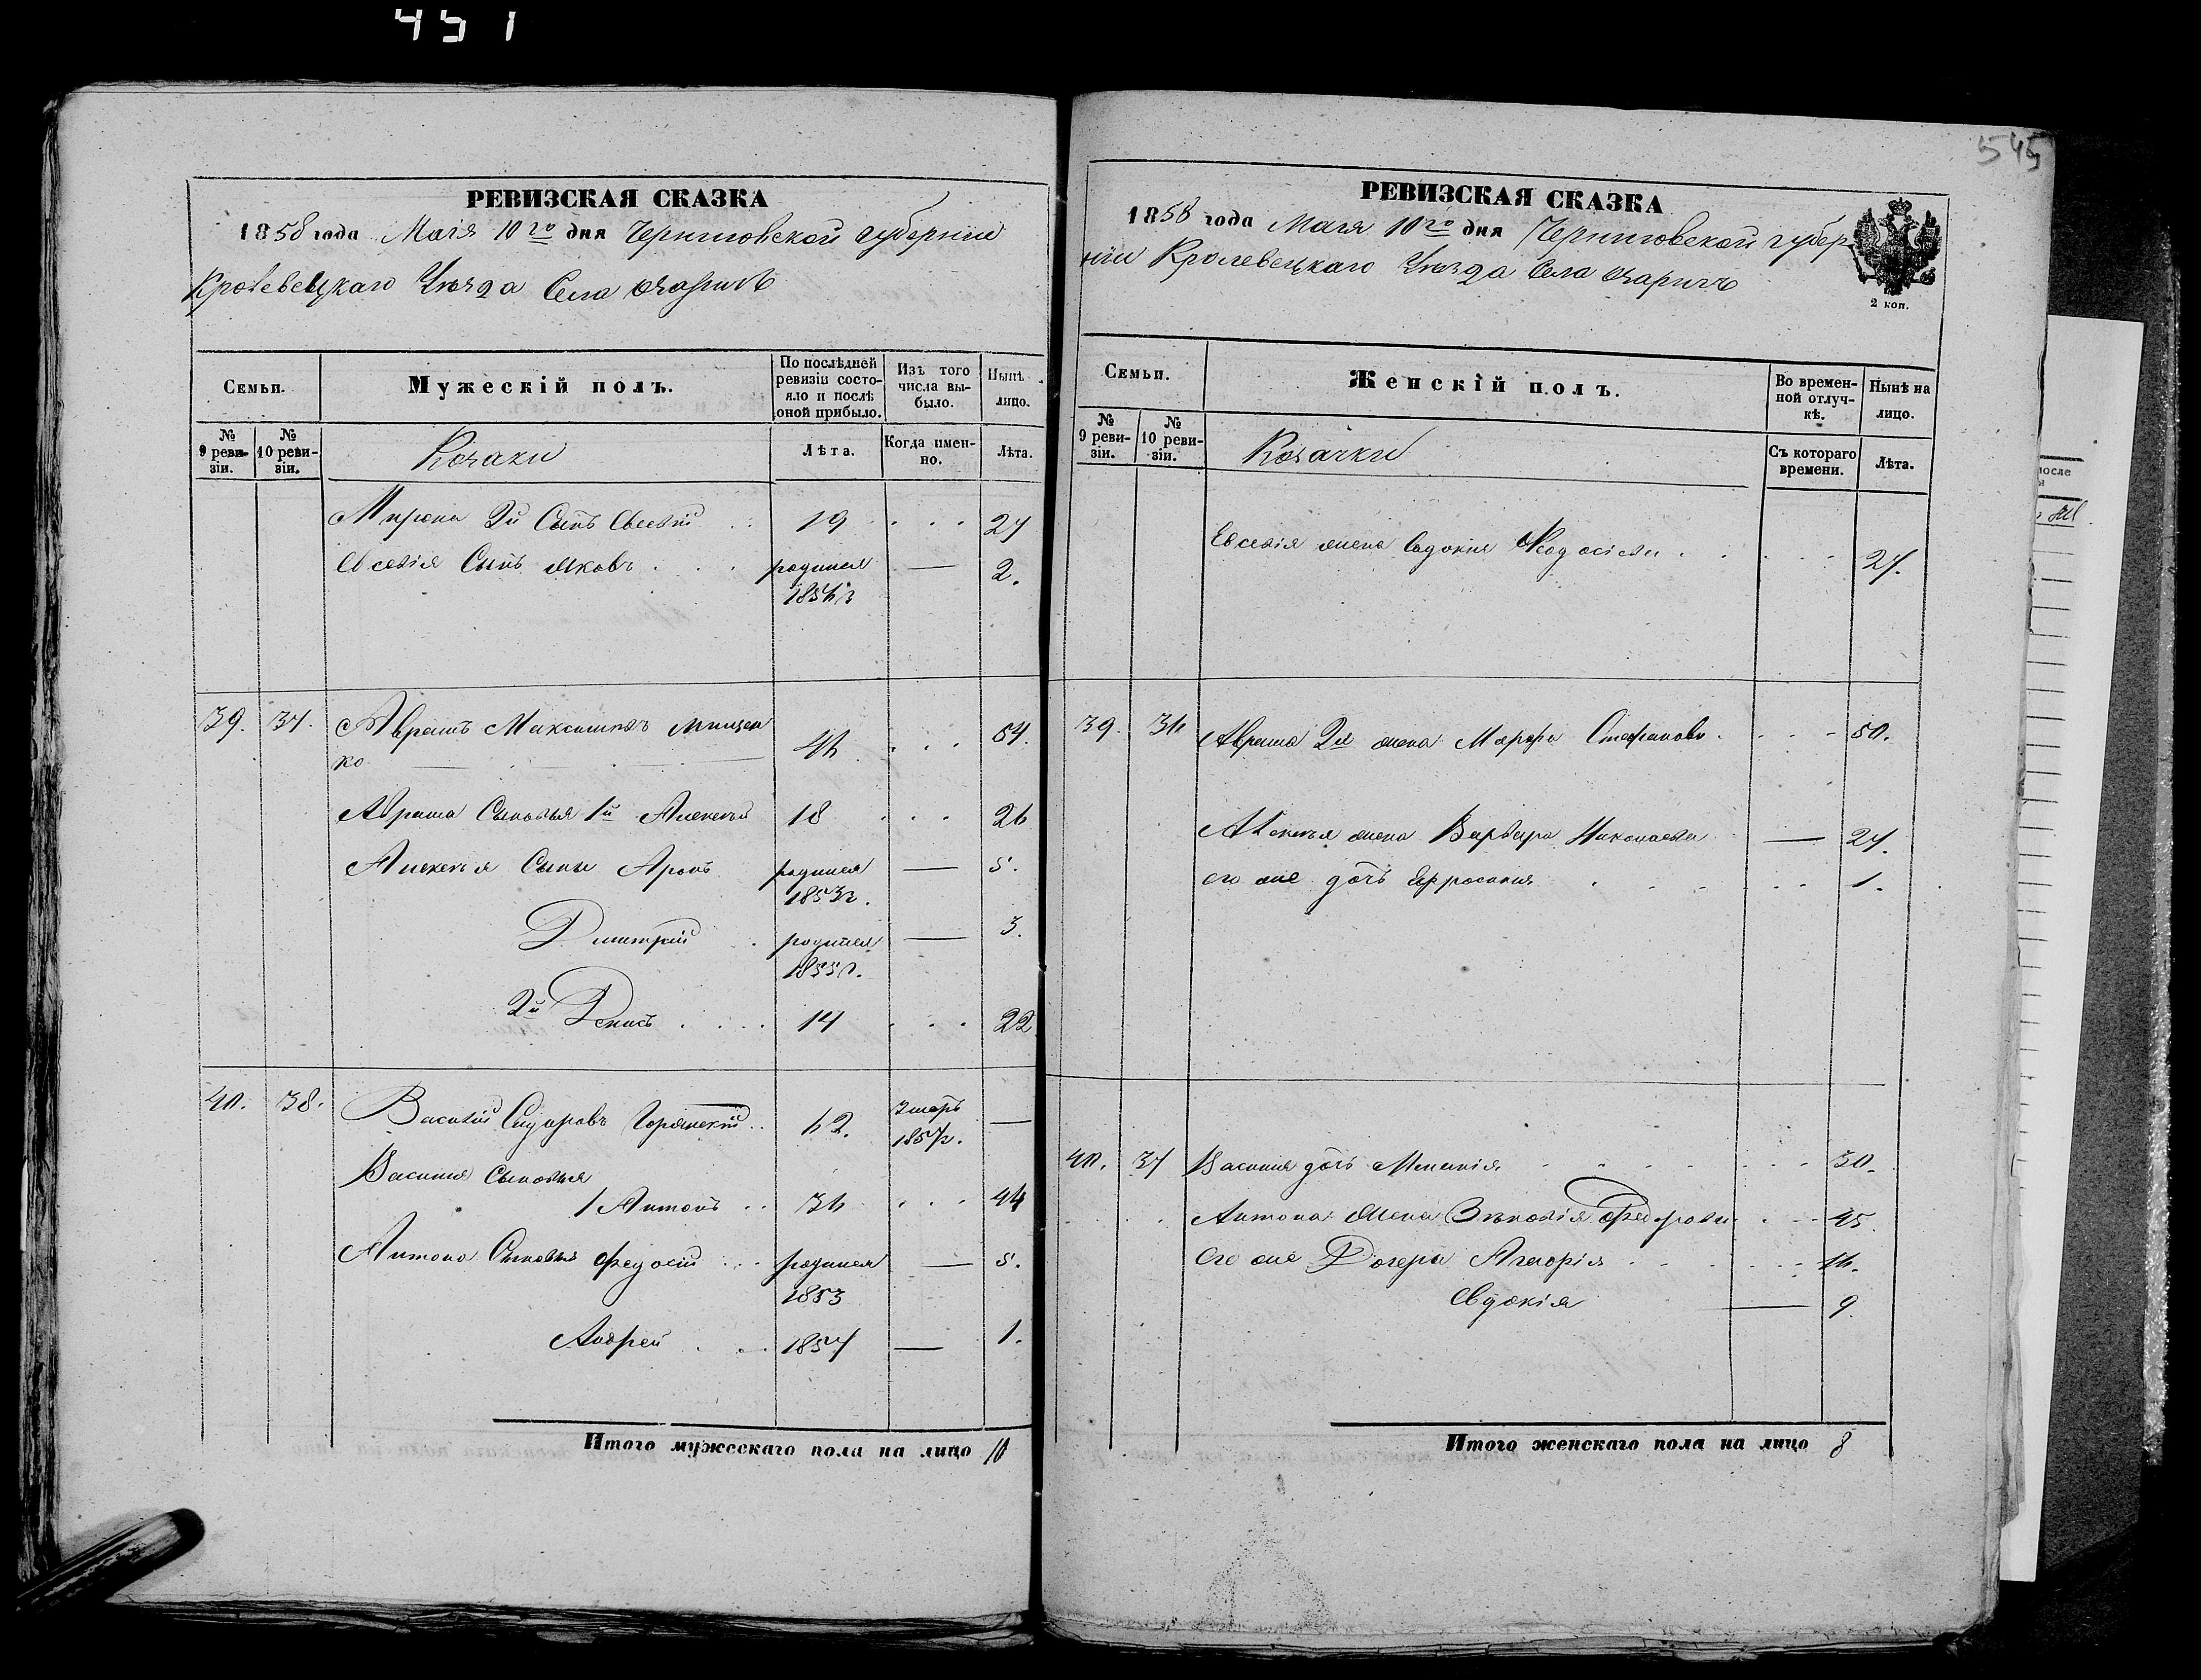 451
РЕВИЗСКАЯ СКАЗКА
1858 года Маія 10го дня Черниговской губерніи
Кролевецкаго Уѣзда Села
Семьи.
Мужескій полъ.
По послѣдней ревизіи состояло и послѣ оной прибыло.
Изъ того числа выбыло.
Нынѣ лицо.
№ 9 ревизіи.
№ 10 ревизіи.
Козаки
Лѣта.
Когда именно.
Лѣта.
Мирона 2й Сынъ Евсевій 19 27
Евсевія Сынъ Яковъ родился — 2.
39. 37. Абрамъ Максимовъ
ко 46 54.
Абрама Сыновья 1й Алексѣй 18 26
Алексѣя Сыны родился — 5.
1853г.
Дмитрій родился — 3.
1855г.
2й Денисъ 14 22
40. 38. Василій Сидоровъ 62. умеръ —
1857г.
Василія Сыновья
1 Антонъ 36 44
Антона Сыновья Федосій родился — 5.
1853
Андрей 1857 — 1.
Итого мужескаго пола на лицо 10
545
РЕВИЗСКАЯ СКАЗКА
1858 года Маія 10го дня Черниговской губер
ніи Кролевецкаго Уѣзда Села
2 коп.
Семьи.
Женскій полъ.
Во временной отлучкѣ.
Нынѣ на лицо.
№ 9 ревизіи.
№ 10 ревизіи.
Козачки
Съ котораго времени.
Лѣта.
Евсевія жена Евдокия 27.
39. 36 Абрама 2я жена Марфа Стефанова 50.
Алексѣя жена Варвара Николаева — 27.
его же дочь Ефросинія 1.
40. 37 Василія дочь Меланія 30.
Антона жена Зѣновія Федорова 45.
его же Дочери 16.
Евдокія — 9.
Итого женскаго пола на лицо 8